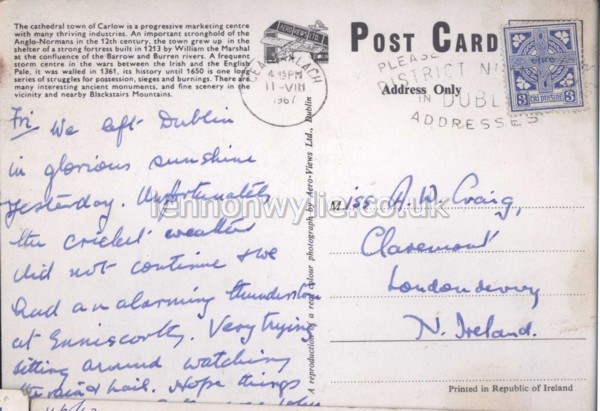 The cathedral town of Carlow is a progressive marketing centre
with many thriving industries. An important stronghold of the
Anglo-Normans in the 12th century, the town grew up in the
shelter of a strong fortress built in 1213 by William the Marshal
at the confluence of the Barrow and Burren rivers. A frequent
storm centre in the wars between the Irish and the English
Pale, it was walled in 1361, its history until 1650 is one long
series of struggles for possession, sieges and burnings. There are
many interesting ancient monuments, and fine scenery in the
vicinity and nearby Blackstairs Mountains.
Fri We left Dublin
in glorious sunshine
yesterday. Unfortunately
the cricket weather
did not continue & we
had an alarming thunderstorm
at Enniscorthy. Very trying
sitting around watching
the rain & hail. Hope things
AERO VIEWS LTD.
A reproduction of a real colour photograph by Aero-Views Ltd., Dublin
4.45PM
11-VIII
1967
POST CARD
Address Only
PLEASE
DISTRICT
IN DUBLIN
ADDRESSES
éire
3
Miss A. W. Craig,
Claremont
Londonderry
N. Ireland.
Printed in Republic of Ireland
lennonwylie.co.uk